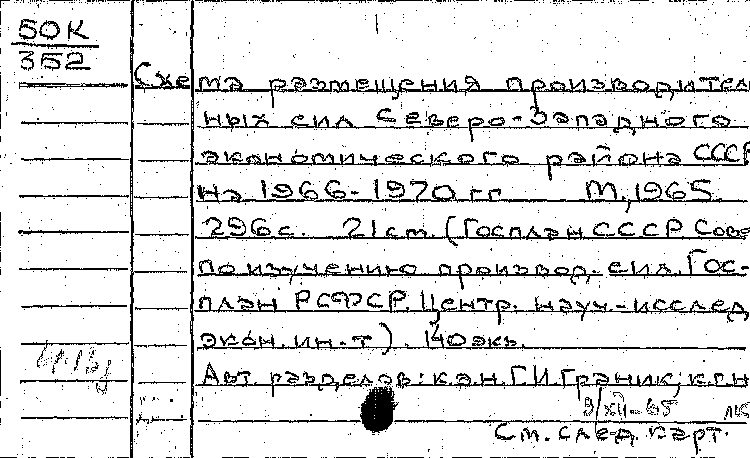 50К
352
Схема размещения производитель
ных сил Северо-Западного
экономического района СССР
на 1966-1970 гг М, 1965.
296 с. 21 см. (Госплан СССР Сове
по изучению производ. сил. Гос-
план РСФСР. Центр. науч.-исслед
экон. ин-т). 140 экз.
Авт. разделов: к.э.н. Г.И. Граник; к.г.н
9/XII-65
См. след. карт.